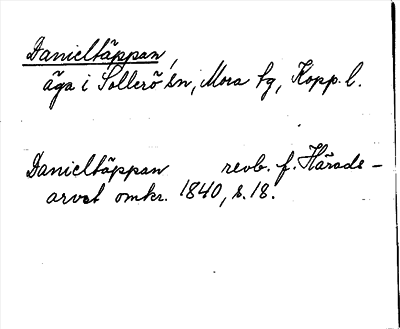 Danieltäppan,
äga i Sollerö sn, Mora tg, Kopp. l.
Danieltäppan revb. f. Härads-
arvet omkr. 1840, s. 18.